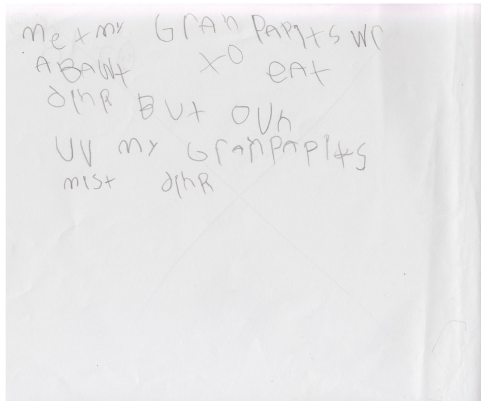 me + my GraN PaPitS Wr
A BAWt to eat
dinR BUt OUN
UV my GranPaPitS
mist dinR